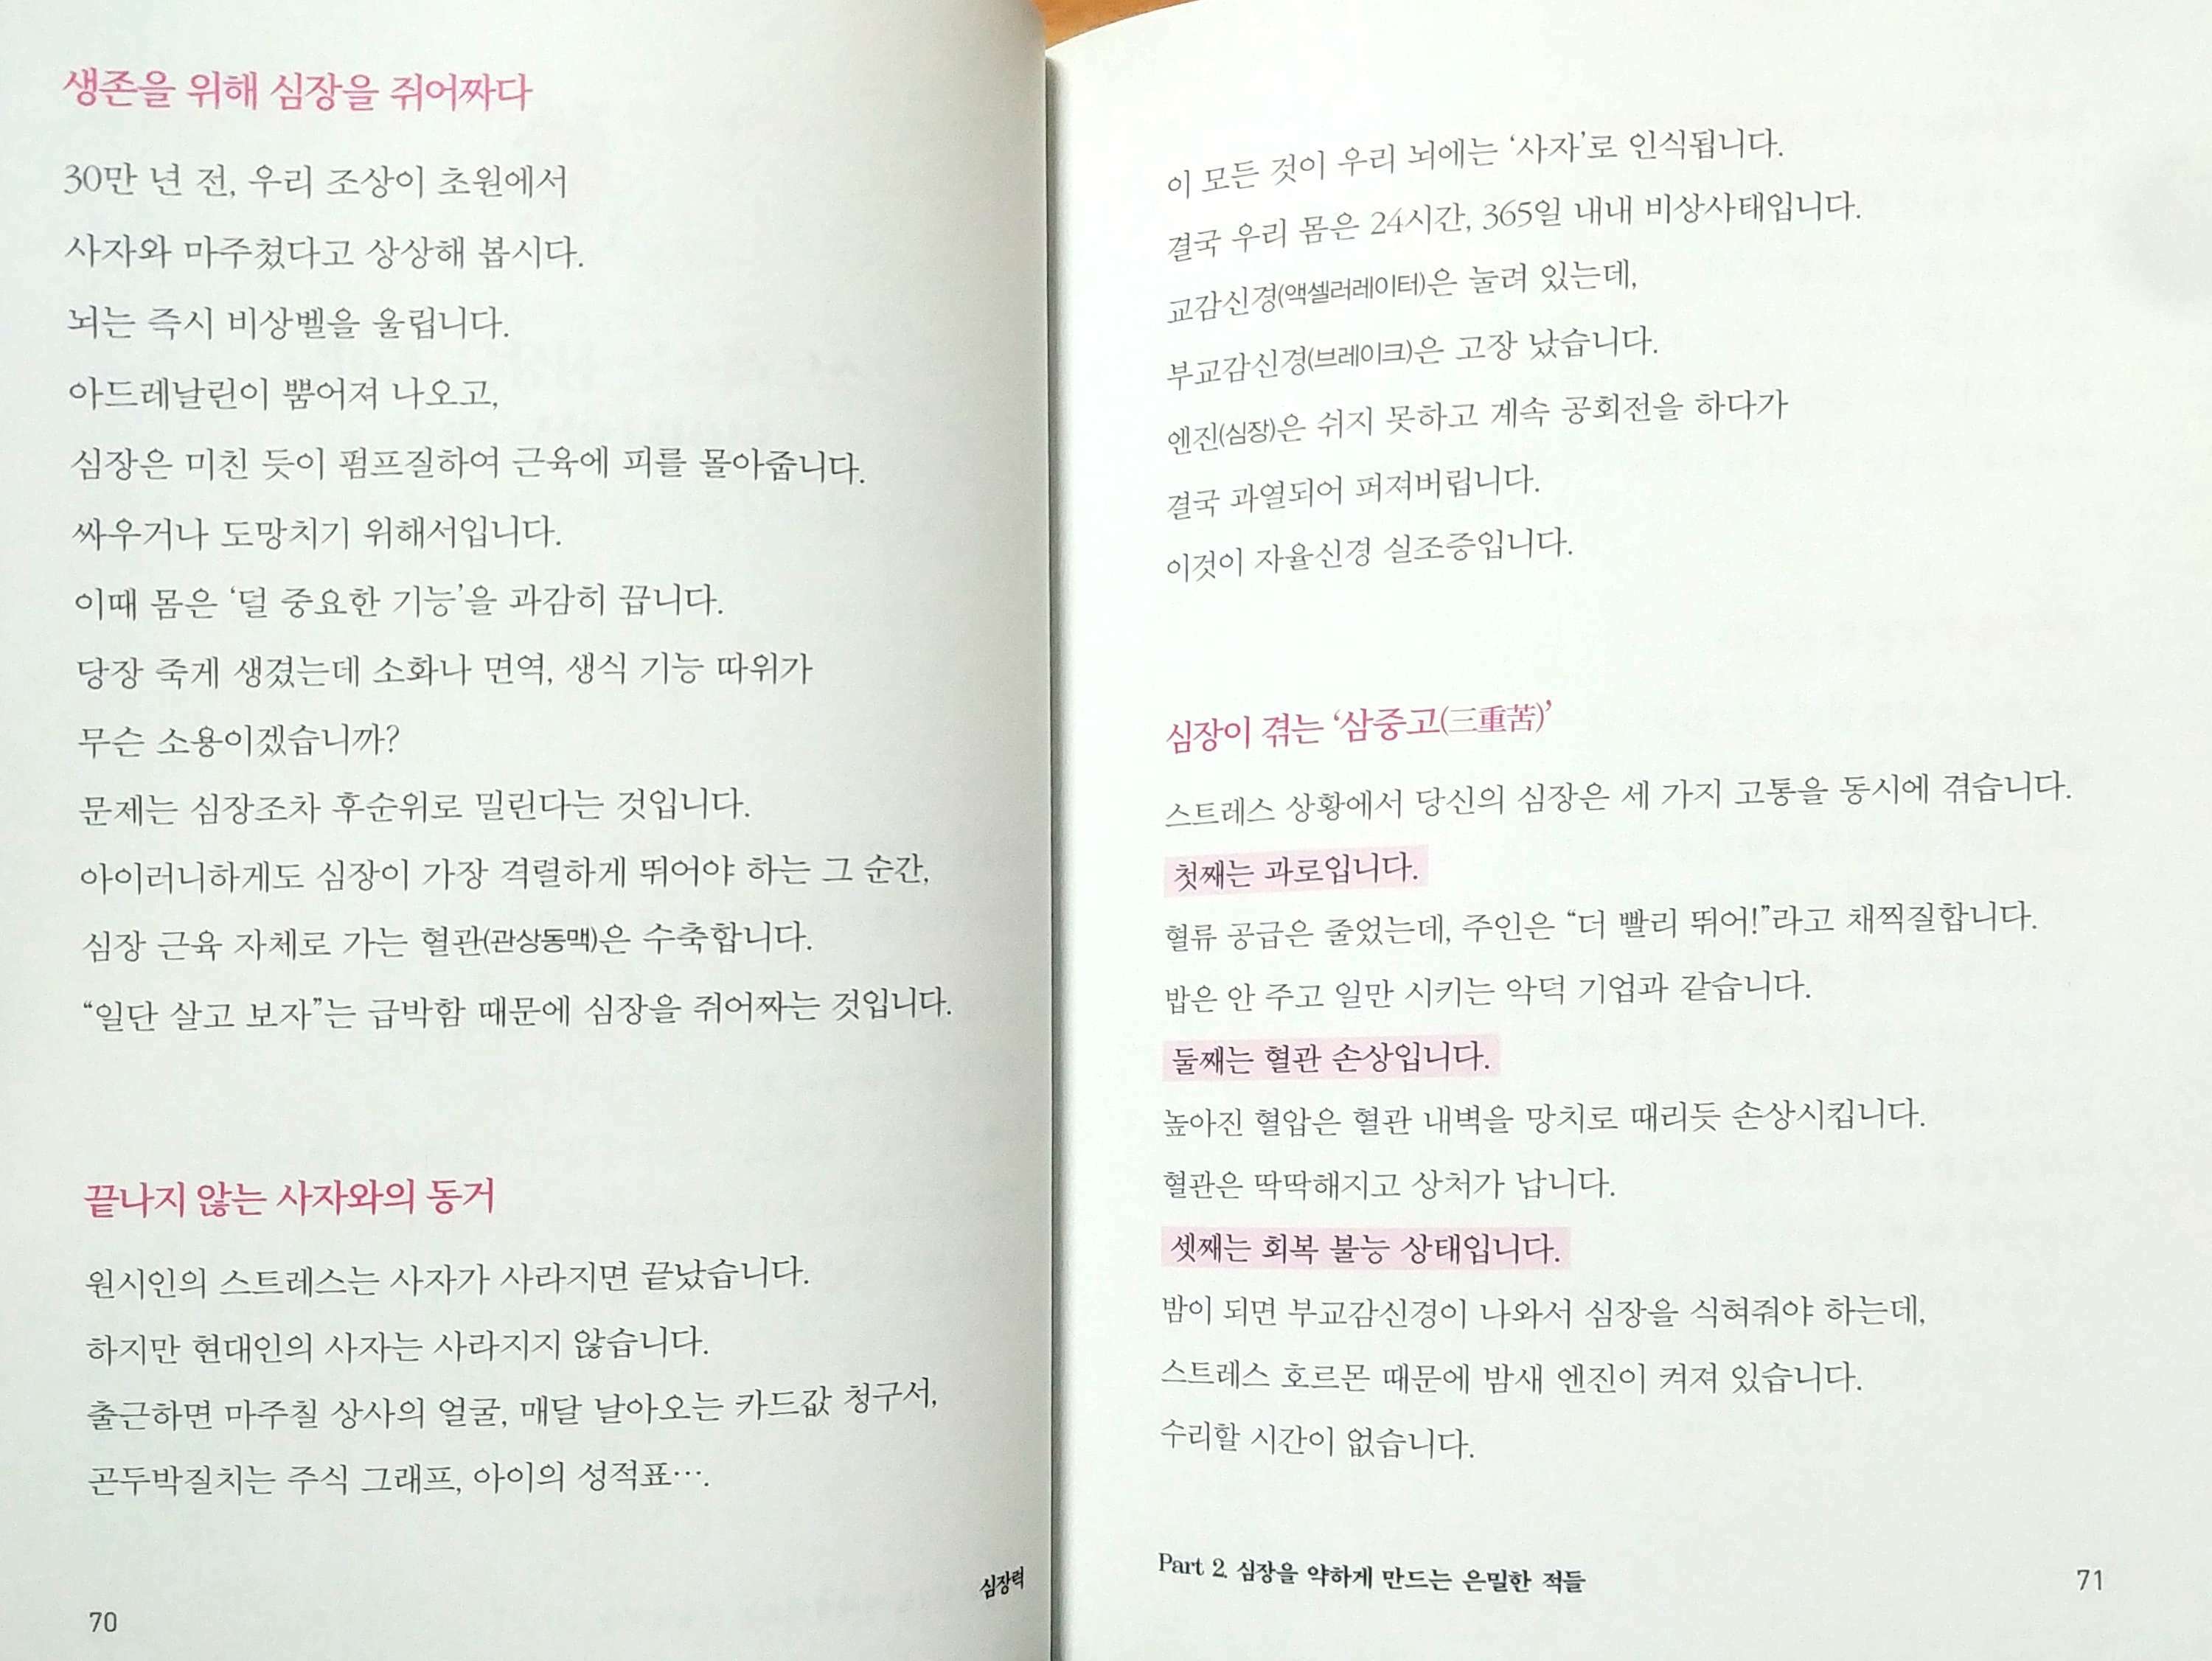 생존을 위해 심장을 쥐어짜다
30만 년 전, 우리 조상이 초원에서
사자와 마주쳤다고 상상해 봅시다.
뇌는 즉시 비상벨을 울립니다.
아드레날린이 뿜어져 나오고,
심장은 미친 듯이 펌프질하여 근육에 피를 몰아줍니다.
싸우거나 도망치기 위해서입니다.
이때 몸은 ‘덜 중요한 기능’을 과감히 끕니다.
당장 죽게 생겼는데 소화나 면역, 생식 기능 따위가
무슨 소용이겠습니까?
문제는 심장조차 후순위로 밀린다는 것입니다.
아이러니하게도 심장이 가장 격렬하게 뛰어야 하는 그 순간,
심장 근육 자체로 가는 혈관(관상동맥)은 수축합니다.
“일단 살고 보자”는 급박함 때문에 심장을 쥐어짜는 것입니다.
끝나지 않는 사자와의 동거
원시인의 스트레스는 사자가 사라지면 끝났습니다.
하지만 현대인의 사자는 사라지지 않습니다.
출근하면 마주칠 상사의 얼굴, 매달 날아오는 카드값 청구서,
곤두박질치는 주식 그래프, 아이의 성적표….
심장력
70
이 모든 것이 우리 뇌에는 ‘사자’로 인식됩니다.
결국 우리 몸은 24시간, 365일 내내 비상사태입니다.
교감신경(액셀러레이터)은 눌려 있는데,
부교감신경(브레이크)은 고장 났습니다.
엔진(심장)은 쉬지 못하고 계속 공회전을 하다가
결국 과열되어 퍼져버립니다.
이것이 자율신경 실조증입니다.
심장이 겪는 ‘삼중고(三重苦)’
스트레스 상황에서 당신의 심장은 세 가지 고통을 동시에 겪습니다.
첫째는 과로입니다.
혈류 공급은 줄었는데, 주인은 “더 빨리 뛰어!”라고 채찍질합니다.
밥은 안 주고 일만 시키는 악덕 기업과 같습니다.
둘째는 혈관 손상입니다.
높아진 혈압은 혈관 내벽을 망치로 때리듯 손상시킵니다.
혈관은 딱딱해지고 상처가 납니다.
셋째는 회복 불능 상태입니다.
밤이 되면 부교감신경이 나와서 심장을 식혀줘야 하는데,
스트레스 호르몬 때문에 밤새 엔진이 켜져 있습니다.
수리할 시간이 없습니다.
Part 2. 심장을 약하게 만드는 은밀한 적들
71